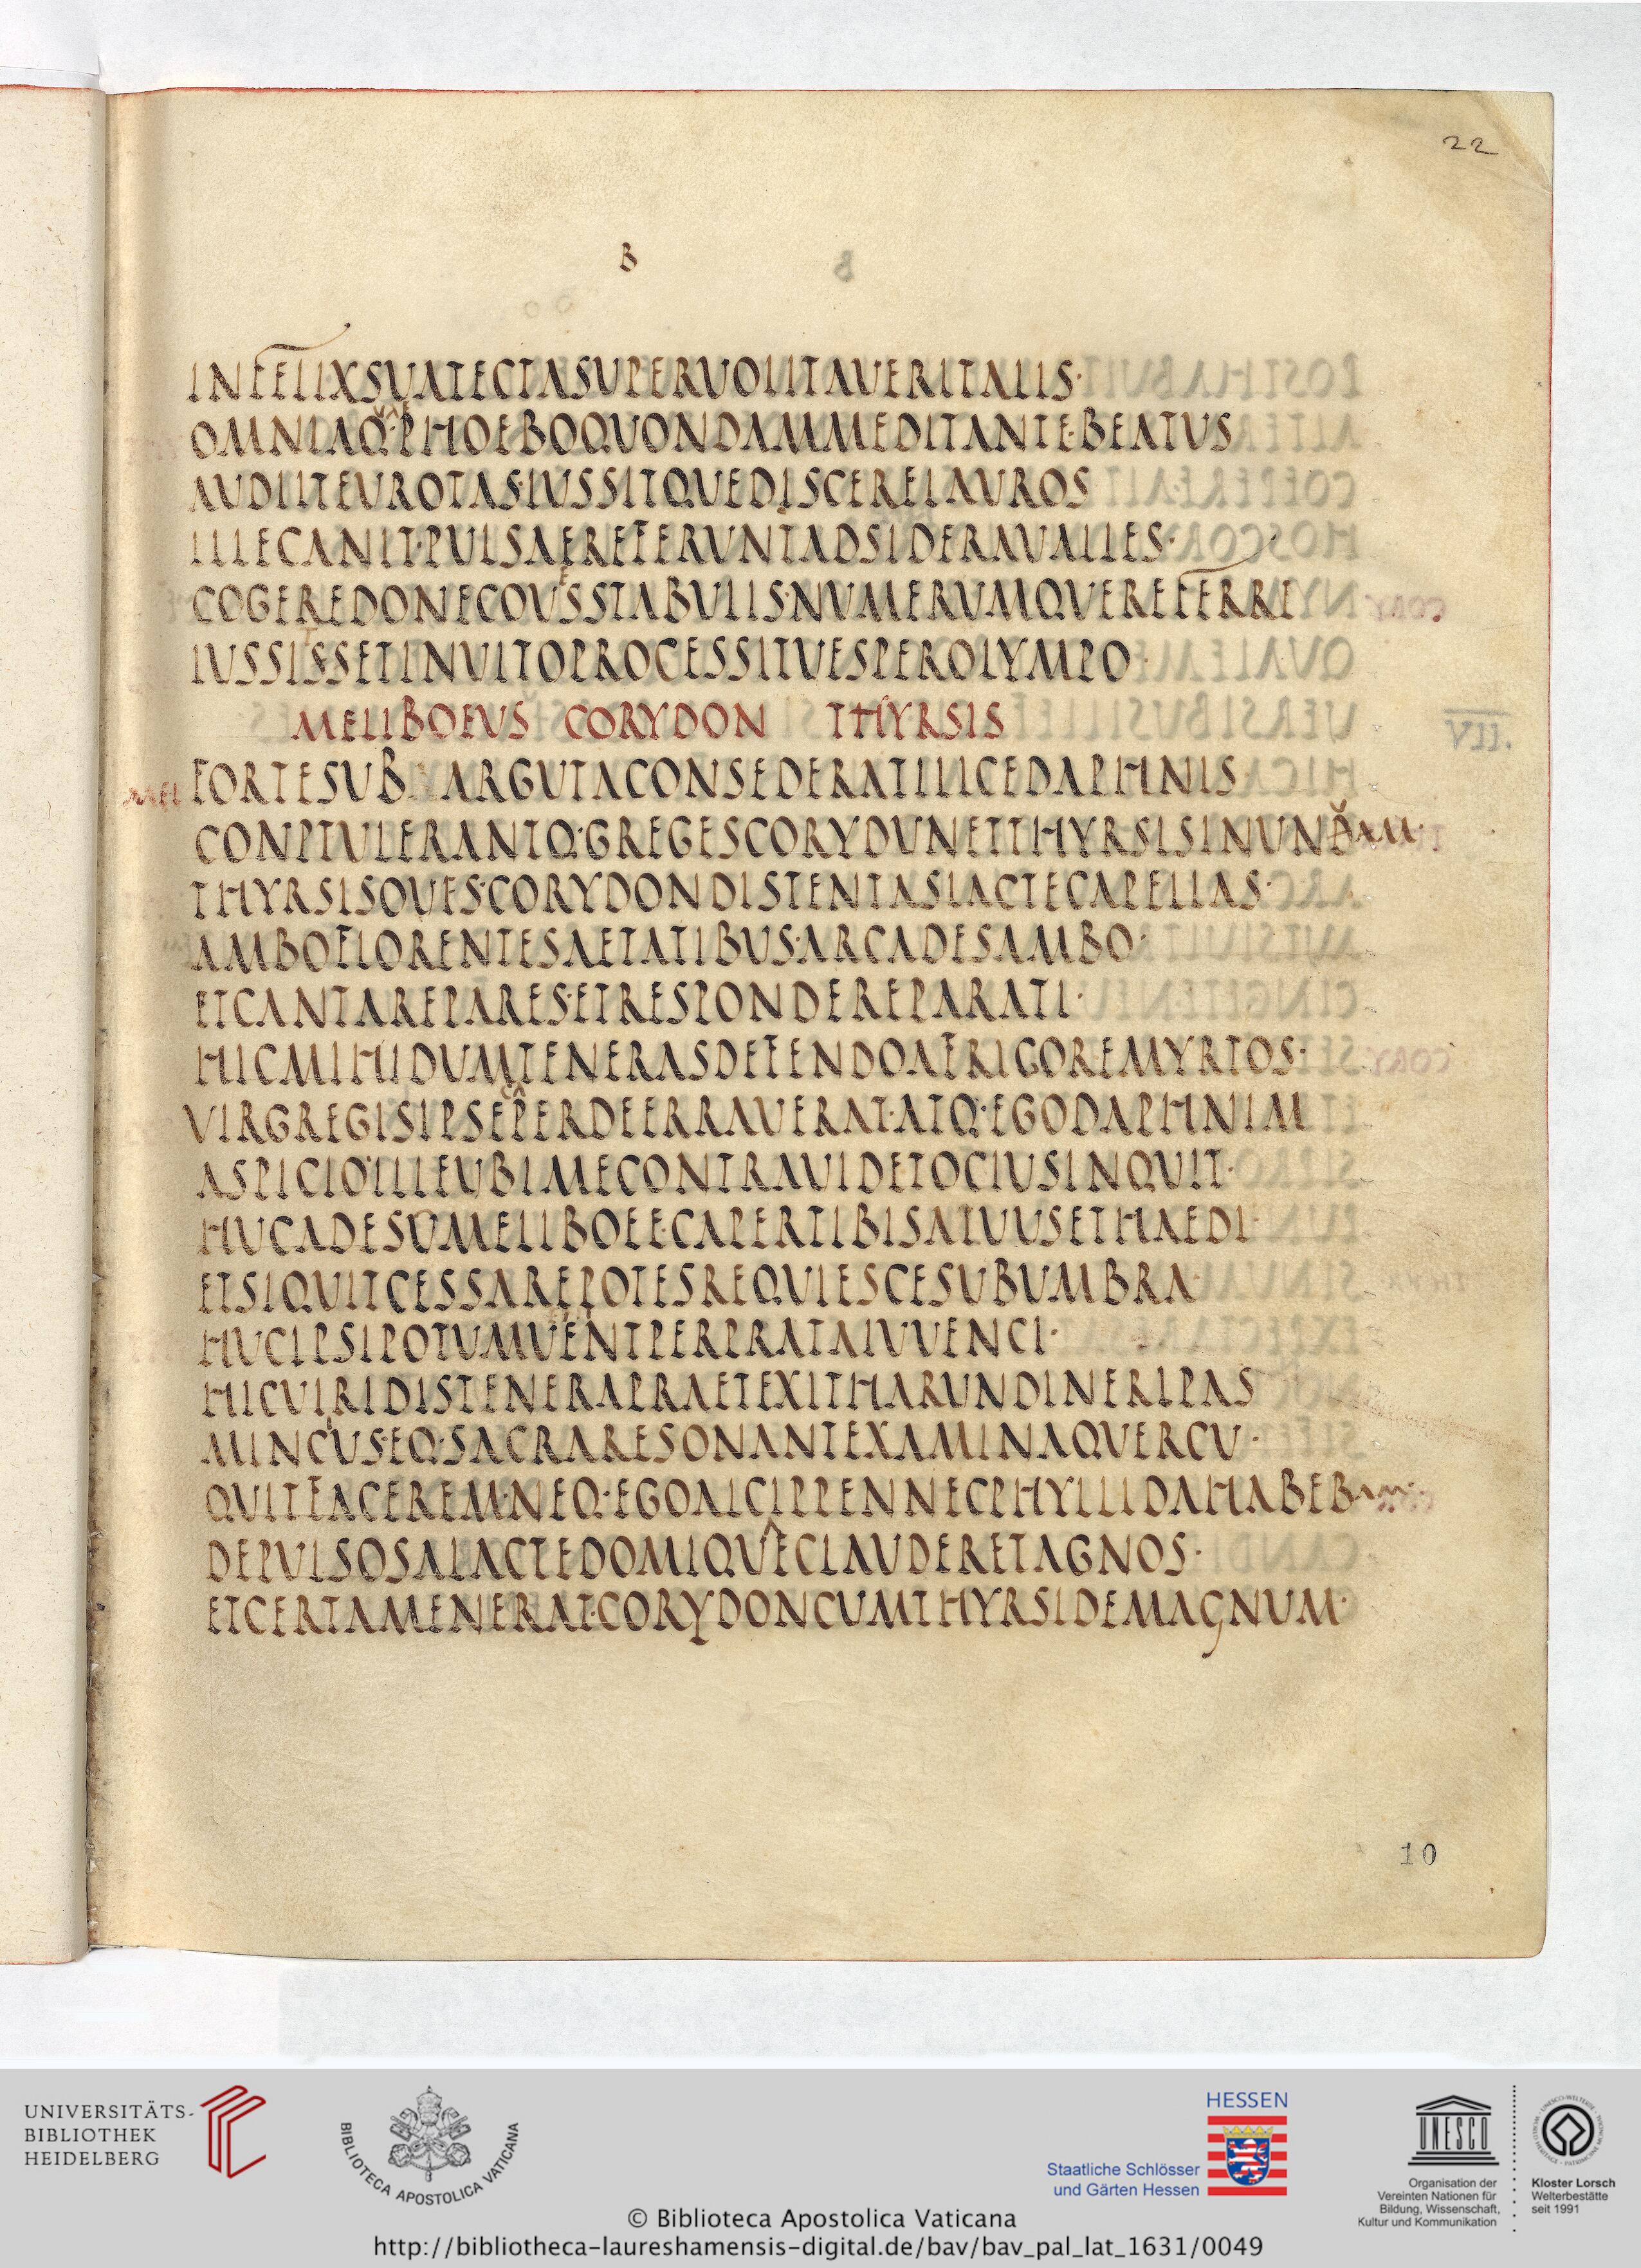 22
B
INFELIXSUATECTASUPERVOLITAVERITALIS·
OMNIAQ·PHOEBOQUONDAMMEDITANTE·BEATUS
AUDIITEUROTAS·IUSSITQUEDISCERELAUROS
ILLECANIT·PULSAEREFERUNTADSIDERAVALLES·
COGEREDONECOVESSTABULIS·NUMERUMQUEREFERRI
IUSSISSETINVITOPROCESSITVESPEROLYMPO·
MELIBOEUS CORYDON THYRSIS
VII.
MEL
FORTESUB ARGUTACONSEDERATILICEDAPHNIS
CONPTULERANTQ·GREGESCORYDUNETTHYRSISINUNUM·
THYRSISOVES·CORYDONDISTENTASLACTECAPELLAS·
AMBOFLORENTESAETATIBUS·ARCADESAMBO·
ETCANTAREPARES·ETRESPONDEREPARATI·
HICMIHIDUMTENERASDEFENDOAFRIGOREMYRTOS·
VIRGREGISIPSEPERDEERRAVERAT·ATQ·EGODAPHNIM
ASPICIO·ILLEUBIMECONTRAVIDETOCIUSINQUIT·
HUCADESOMELIBOEE·CAPERTIBISALVUSETHAEDI·
ETSIQUITCESSAREPOTESREQUIESCESUBUMBRA·
HUCIPSIPOTUMVENNTPERPRATAIUVENCI·
HICVIRIDISTENERAPRAETEXITHARUNDINERIPAS
MINCIUS·EQ·SACRARESONANTEXAMINAQUERCU·
QUITFACEREM·NEQ·EGOALCIPPENNECPHYLLIDAHABEBAM·
DEPULSOSALACTEDOMIQUECLAUDERETAGNOS·
ETCERTAMENERAT·CORYDONCUMTHYRSIDEMAGNUM·
10
UNIVERSITÄTS-
BIBLIOTHEK
HEIDELBERG
BIBLIOTECA APOSTOLICA VATICANA
HESSEN
Staatliche Schlösser
und Gärten Hessen
UNESCO
Organisation der
Vereinten Nationen für
Bildung, Wissenschaft,
Kultur und Kommunikation
Kloster Lorsch
Welterbestätte
seit 1991
© Biblioteca Apostolica Vaticana
http://bibliotheca-laureshamensis-digital.de/bav/bav_pal_lat_1631/0049